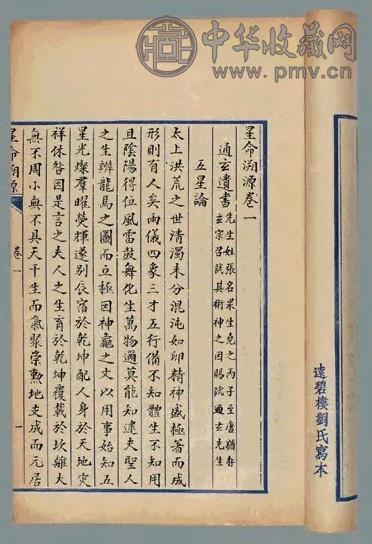 中华收藏网
www.pmv.cn
遠碧樓劉氏寫本
星命溯源卷一
通玄遺書
先生姓張名果生堯之丙子至唐猶存
玄宗召就具術神之因賜號通玄先生
五星論
太上洪荒之世清濁未分混沌如卵精神盛極著而成
形則有人矣兩儀四象三才五行備不知體生不知用
且陰陽得位風雷鼓舞化生萬物適莫能知逮夫聖人
之生辨龍馬之圖而立極因神龜之文以用事始知五
星光燦群曜榮輝遂別辰宿於乾坤配人身於天地災
祥休咎因是言之夫人之生育於乾坤覆載於坎離大
無不周小無不具天干生而氣聚崇勲地支成而元居
星命溯源
卷一
一